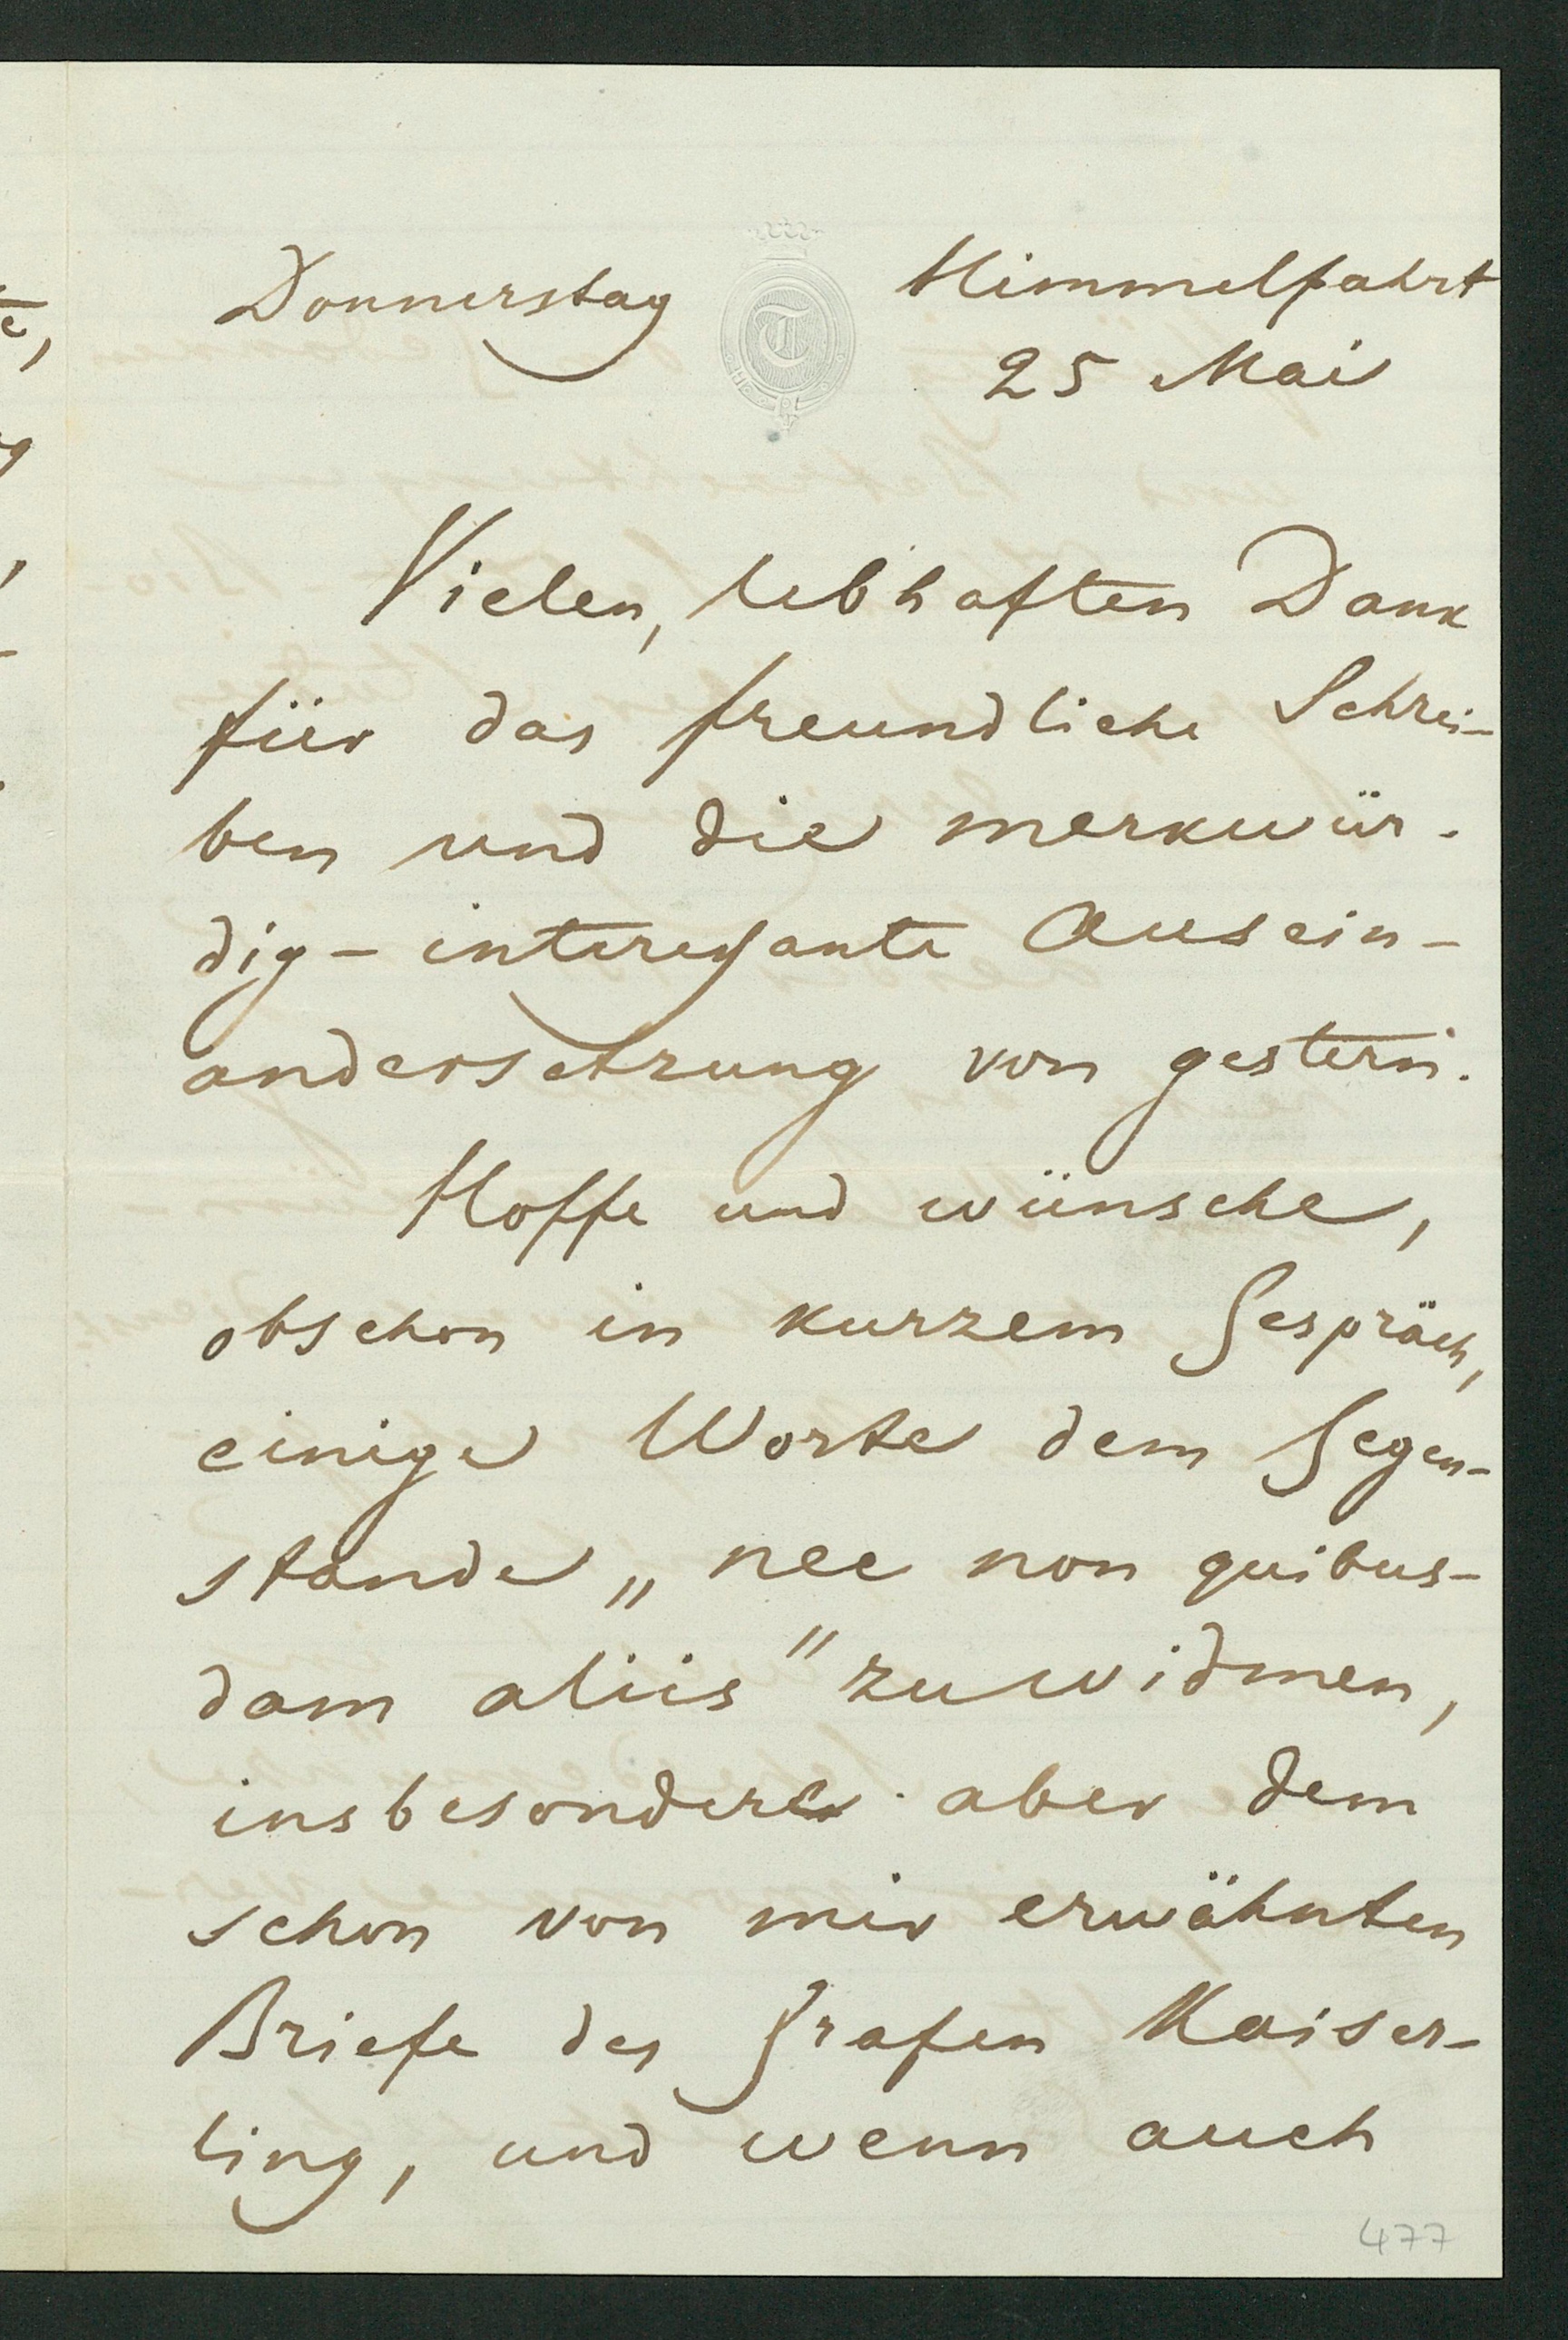 Donnerstag
Himmelfahrt
25 Mai
Vielen, lebhaften Dank
für das freundliche Schrei-
ben und die merkwür-
dig-intereßante Ausein-
andersetzung von gestern.
Hoffe und wünsche,
obschon in kurzem Gespräch,
einige Worte dem Gegen-
stande „nec non quibus-
dam aliis" zu widmen,
insbesondere aber dem
schon von mir erwähnten
Briefe des Grafen Kaiser-
ling, und wenn auch
477